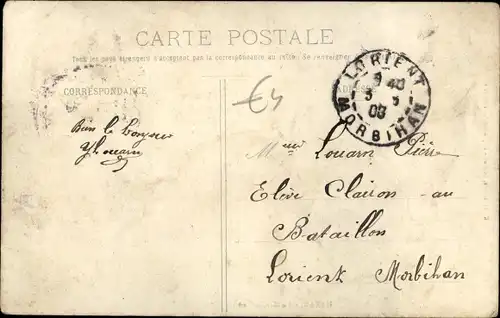 CARTE POSTALE
Tous les pays étrangers n'acceptent pas la correspondance au recto. Se renseigner
CORRESPONDANCE
ADRESSE
€4
LORIENT
MORBIHAN
Bien le bonjour
Y Louarn
Louarn Pierre
Elève Clairon au
Bataillon
Lorient Morbihan